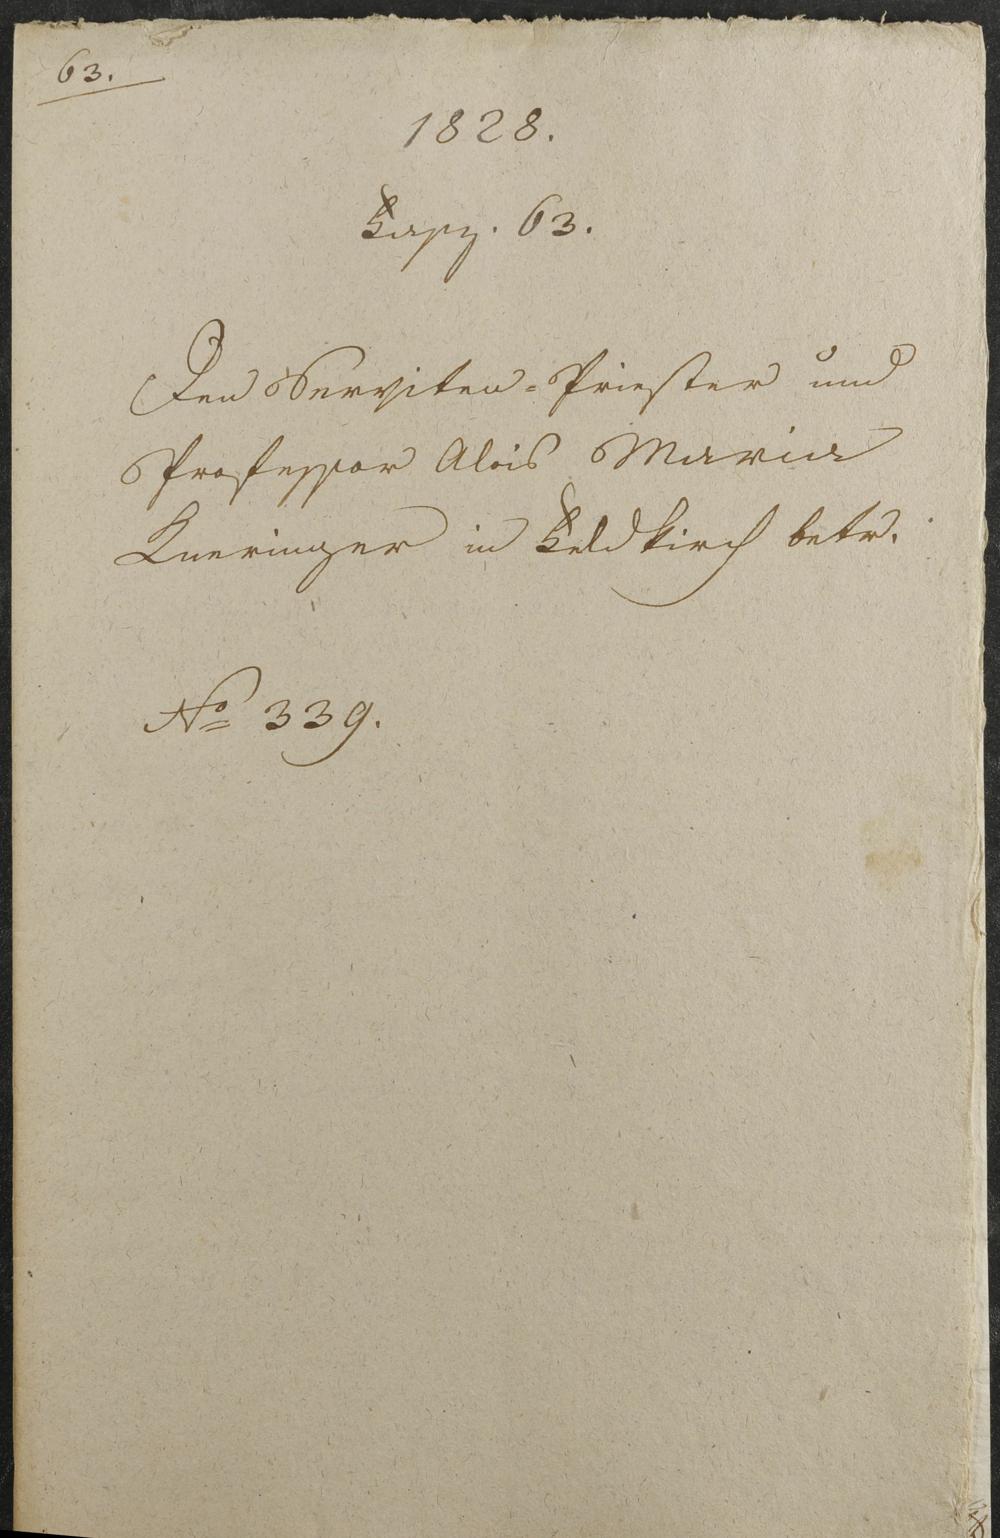 63.
1828.
Fasz. 63.
Den Serviten-Priester und
Professor Alois Maria
Kneringer in Feldkirch betr.
No 339.